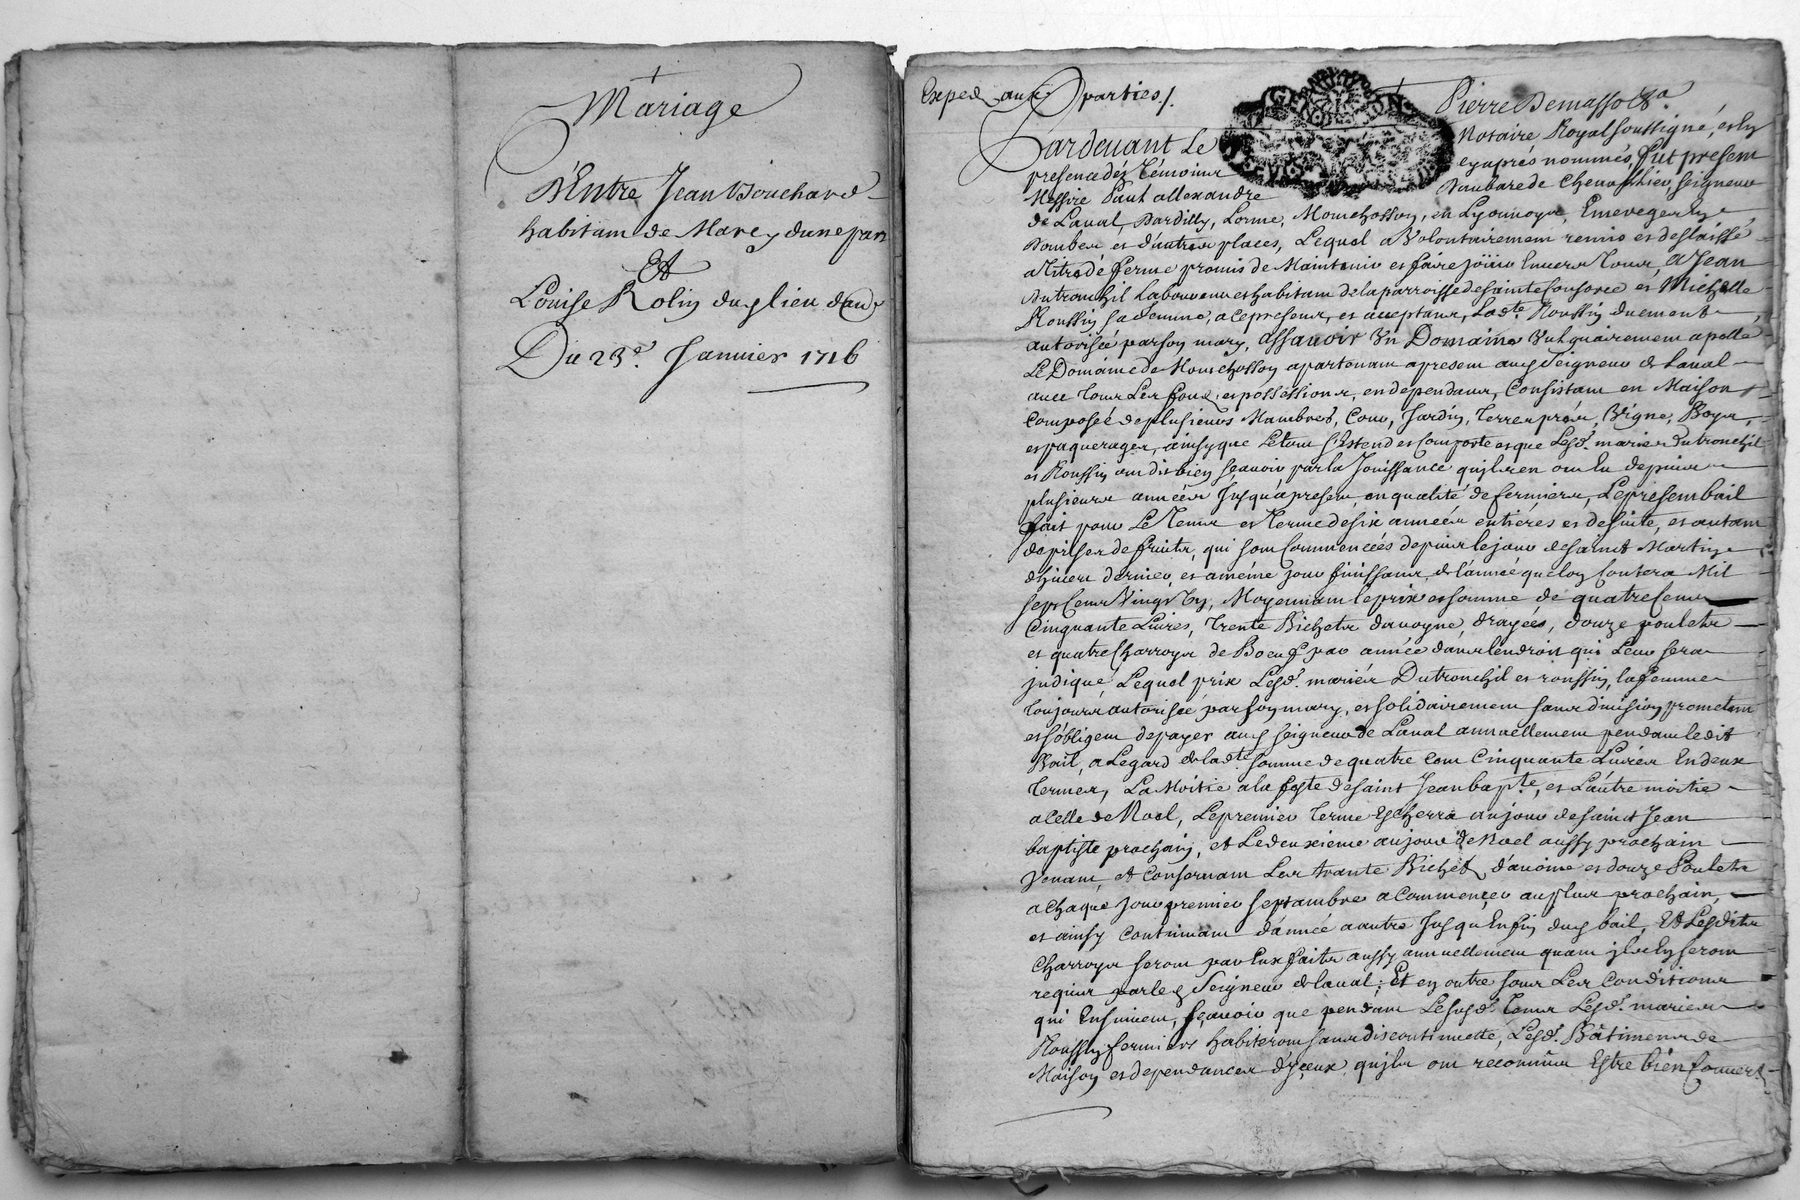 Mariage
D'Entre Jean Bouchard
habitant de Marcy d'une part
Et
Louise Rolin dud lieu d'au
Du 23e. Janvier 1716
Exped aux parties /.
Pardevant Le Pierre Demasso
Notaire Royal soussigné, et en
presence des Témoins cy aprés nommés, fut present
Messire Paul allexandre Daubarede Seigneur
de Laval, Dardilly, Lorme, Monchosson, en Lyonnois,
Dombes et d'autres places, Lequel a Volontairement remis et deslaissé
a Titre de ferme promis de Maintenir et faire joüir Envers Tous, a Jean
Dutronchil Laboureur et habitant de la parroisse de Sainte Consorce et Michelle
Roussin sa femme, a ce presens, et acceptans, Lade. Roussin duement
autorisée par son mary, assavoir Un Domaine Vulguairement apellé
Le Domaine de Monchosson apartenant a present aud Seigneur de Laval
avec Tous Les fonds, et possessions, en dependans, Consistant en Maison
Composée de plusieurs Mambres, Cour, Jardin, Terres, prés, Vigne, Boys,
et paquerages, ainsy que Le tout s'Estend et Comporte et que Lesd. mariés Dutronchil
et Roussin ont dit bien sçavoir par la Jouissance qu'ils en ont Eu depuis
plusieurs années Jusqu'a present, en qualité de fermiers, Le present bail
fait pour Le Tems et Terme de six années entiéres et de suite, et autant
de prises de fruits, qui sont Commencées depuis le jour de saint Martin
d'hiver dernier, et a méme jour finissans, de l'année que l'on Contera Mil
sept Cens Vingt Un, Moyennant le prix et somme de quatre Cens
Cinquante Livres, Trente Bichets d'avoyne, drayée, douze poulets
et quatre Charroys de Boeufs par année dans l'endroit qui Leur sera
jndiqué, Lequel prix Lesd. mariés Dutronchil et roussin, la femme
toujours autorisée par son mary, et solidairement sans division promettent
et s'obligent de payer aud seigneur de Laval annuellement pendant ledit
Bail, a L'egard de lad.te somme de quatre Cent Cinquante Livres En deux
Termes, La Moitié a la feste de saint Jean bapt.te, et L'autre moitié
a Celle de Noel, Le premier Terme Escherra au jour de saint Jean
baptiste prochain, et Le deuxieme au jour de Noel aussy prochain
Venant, et Consernant Les trante Bichets d'avoine et douze Poulets
a Chaque jour premier septambre a Commencer au plus prochain,
et ainsy Continuant d'année a autre Jusqu'En fin dud bail, Et Lesdits
Charroys seront par Eux faits aussy annuellement quant ils En seront
requis par led Seigneur de laval; Et en outre sous Les Conditions
qui Ensuivent, sçavoir que pendant Lesusd. Tems Lesd. mariés
Roussin fermiers habiteront sans discontinuette, Lesd. Bâtimens de
Maison et dependances d'yceux qu'ils ont reconnûs Estre bien Couvert